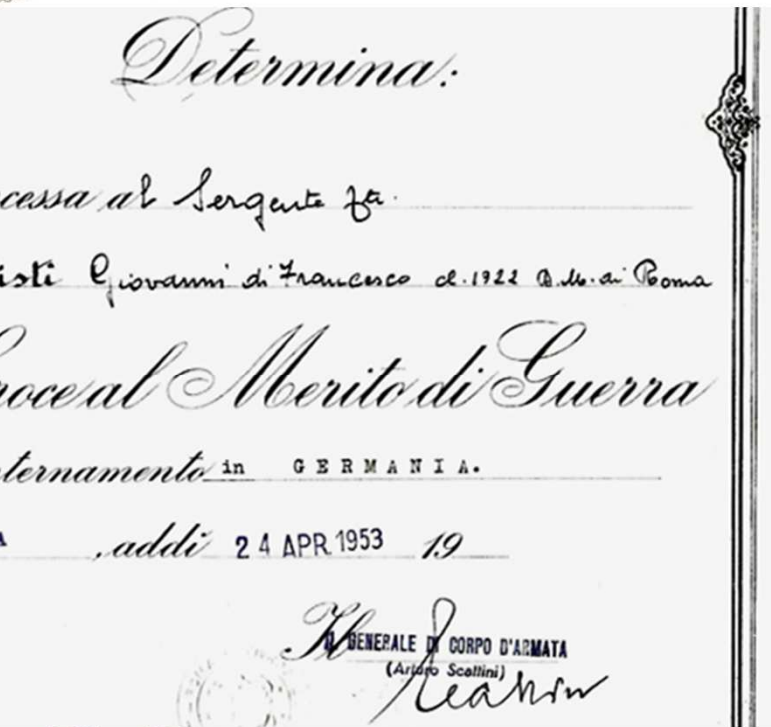 Determina:
cessa al Sergente fa.
isti Giovanni di Francesco cl. 1922 D.M. di Roma
roce al Merito di Guerra
ternamento in GERMANIA.
A , addì 24 APR 1953 19
Il GENERALE DI CORPO D'ARMATA
(Arturo Scattini)